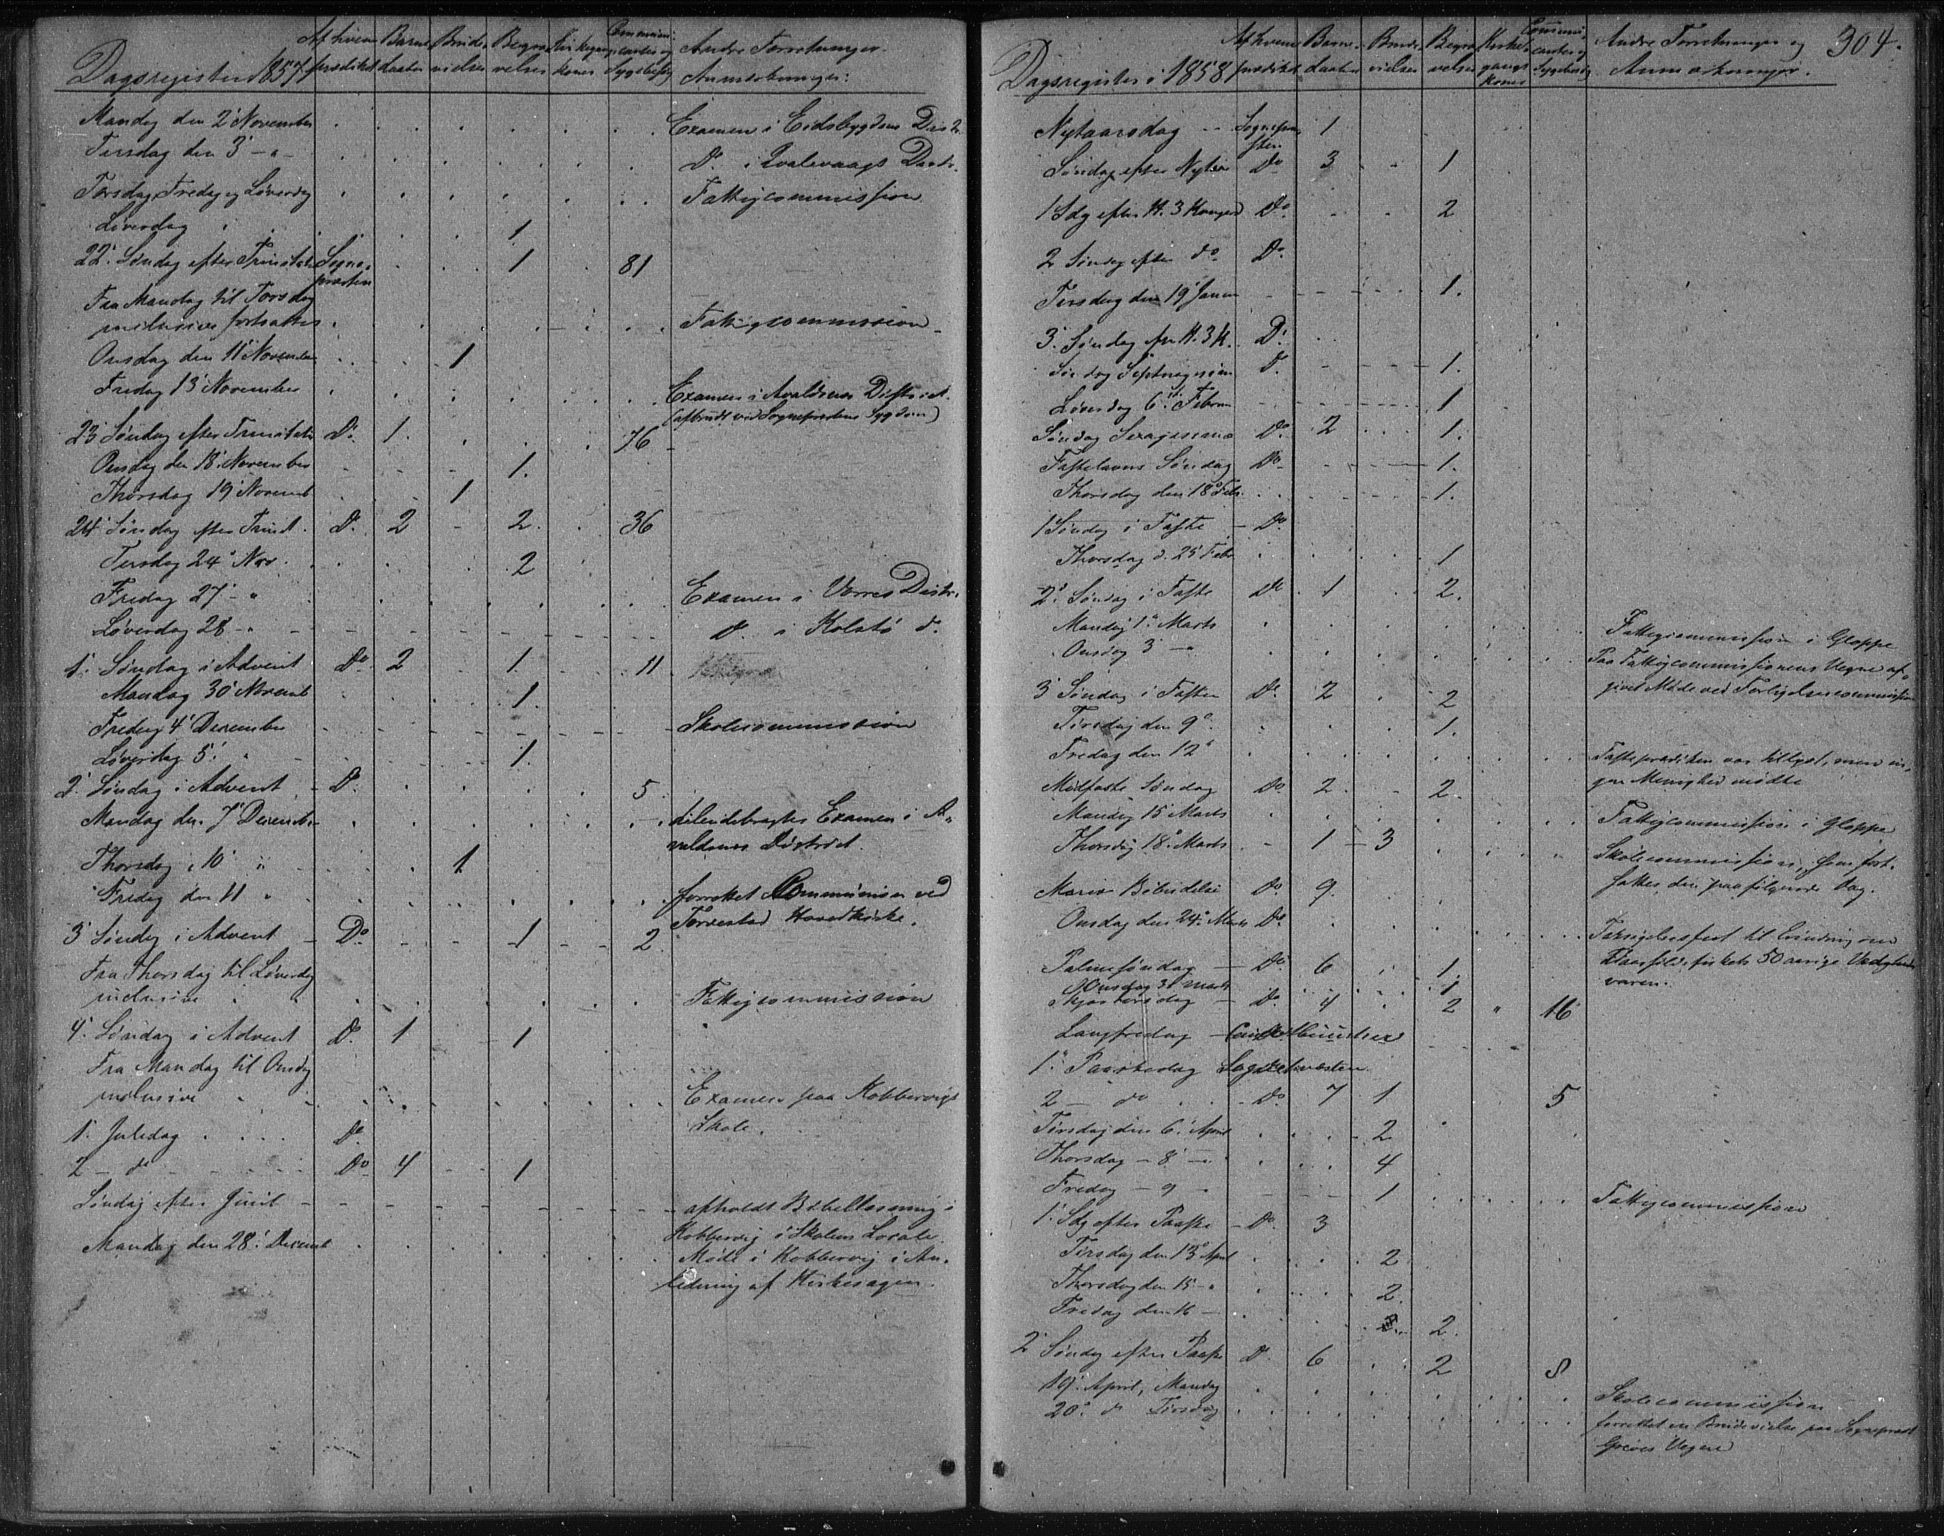 Dagsregister 1857
Af hvem prædiket
Barne daaben
Brude vielser
Begra velser
Kirkegangs koner
Communicanter og Sygebesøg
Andre Forretninger
Anmærkninger:
Mandag den 2' November . . . . . . Examen i Eidsbygdens Distr.
Tirsdag den 3' — " — . . . . . . D°. i Qvalevaags Distr.
Torsdag, Fredag og Løverdag . . . . . . Fattigcommission
Løverdag . . . 1
22' Søndag efter Trinitatis Sognepræsten . . 1 . 81
Fra Mandag til Torsdag
inclusive fortsattes . . . . . . Fattigcommission
Onsdag den 11' November . . 1
Fredag 13' November . . . . . . Examen i Avaldsnes District.
(afbrudt ved Sognepræstens Sygdom)
23' Søndag efter Trinitatis D°. 1. . . . 76
Onsdag den 18' November . . . 1.
Thorsdag 19' Novemb . . 1
24' Søndag efter Trinit. D°. 2 - 2. . 36
Tirsdag 24' Nov. . . . 2
Fredag 27' - " . . . . . . Examen i Vorres Distr.
Løverdag 28 - " - - - - - - D°. i Kolstø d°.
1' Søndag i Advent D° 2 - 1. . 11
Mandag 30' Novemb . . . 1.
Fredag 4' December - - - - - - Skolecommission
Løverdag 5' . . . 1.
2' Søndag i Advent - D°. . . . . 5
Mandag den 7' Decemb. . . . . . . tilendebragtes Examen i A-
valdsnes District.
Thorsdag 10' " . . 1
Fredag den 11 " . . . . . . forrettet Communion ved
Torvestad Hovedkirke.
3' Søndag i Advent - D° - - 1 - 2
Fra Thorsdag til Løverdag
inclusive . . . . . . Fattigcommission
4' Søndag i Advent D°. 1 . 1
Fra Mandag til Onsdag
inclusive . . . . . . Examen paa Kobbervigs
Skole.
1' Juledag . . . . D°
2 — d° - - - - D° 4 - 1
Søndag efter Juul - - - - - - - afholdt Bibellæsning i
Kobbervig i Skolens Locale.
Mandag den 28' Decemb . . . . . . Møde i Kobbervig i An-
ledning af Kirkesagen.
304.
Dagsregister i 1858
Af hvem prædiket
Barne daaben
Brude vielser
Begra velser
Kirke gangs koner
Communicanter og Sygebesøg
Andre Forretninger og
Anmærkninger.
Nytaarsdag - - Sognepræsten 1
Søndag efter Nytaar D° 3 - - 1
1 Sdg efter H. 3 Konger D°. . . 2
2 Søndag efter d° D°.
Tirsdag den 19' Januar - - - - 1.
3' Søndag efter H. 3 K. D°.
Søndag Septuagesima D°. - - 1.
Løverdag 6' Februar - - - - 1
Søndag Sexagesima D°. 2 . 1.
Fastelavns Søndag D° - - 1.
Thorsdag den 18' Feb. . . . 1.
1 Søndag i Faste - D°
Thorsdag d. 25' Febr . . . 1
2' Søndag i Faste D° 1 . 2.
Mandag 1' Marts . . . . . . Fattigcommission i Gloppe
Onsdag 3' — " . . . . . . Paa Fattigcommissionens Vegne af-
givet Møde ved Forligelsescommission
3' Søndag i Fasten D°. 2 . 2
Tirsdag den 9' . . . 1.
Fredag den 12' . . . . . . Fasteprædiken var tillyst, men in-
gen Menighed mødte
Midfaste Søndag D°. 2. - 2.
Mandag 15' Marts . . . . . . Fattigcommission i Gloppe
Thorsdag 18' Marts - 1 - 3 . . . Skolecommission, som fort-
sattes den paafølgende Dag.
Mariæ Bebudelse D°. 9
Onsdag den 24' Marts D°. . . . . . Takksigelsesfest til Erindring om
Vaarsildfiskets 50 aarige Vedligeholdelse
varen.
Palmesøndag - D°. 6 . 1.
Onsdag 31 Marts 1
Skjærtorsdag - D°. 4 . 2 " 16
Langfredag -
1' Paaskedag Sognepræsten
2 — d° . - D°. 7 1 . . 5
Tirsdag den 6' April . . 2
Thorsdag - 8' - . . 4
Fredag - 9 - - - 1 . . . . Fattigcommission
1' Sdg efter Paaske - D°. 3
Tirsdag den 13' April . . 2
Thorsdag den 15 - " . . 2.
Fredag den 16 - . . . 2.
2' Søndag efter Paaske D°. 6 . 2 . 8
19' April, Mandag . . . . . . Skolecommission
20' d° Tirsdag . . . . . . forrettet en Brudevielse paa Sognepræst
Greves Vegne